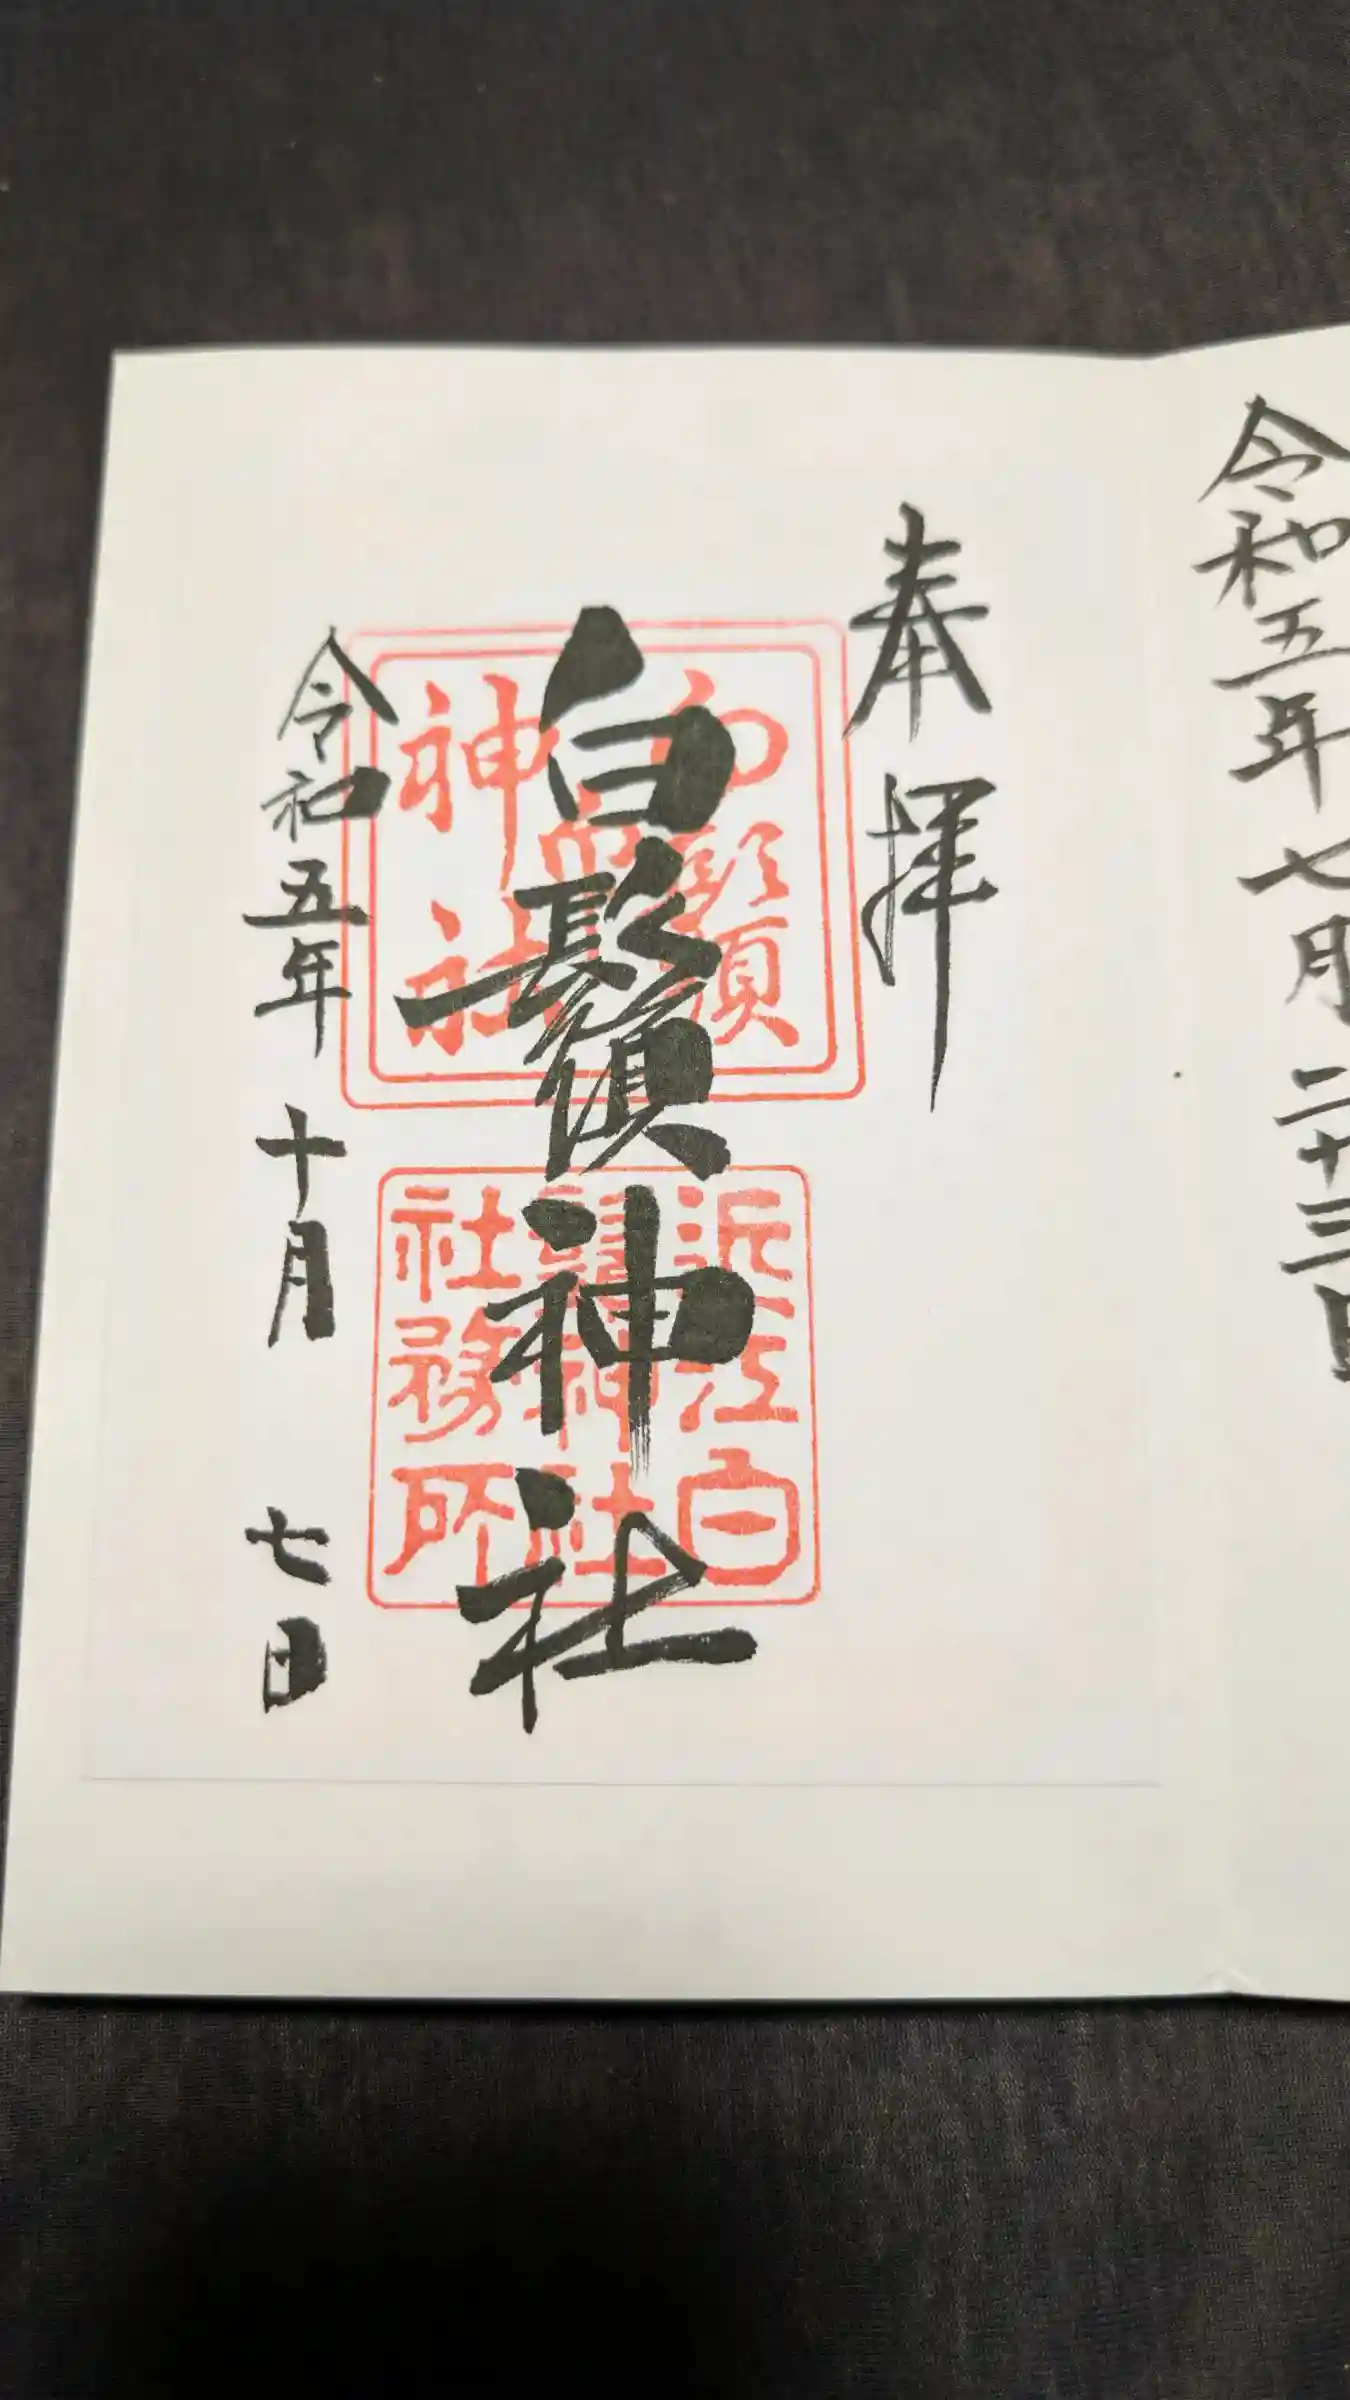 令和五年七月二十三日
奉拝
白鬚神社
令和五年十月七日
白鬚
神社
近江白
鬚神社
社務所